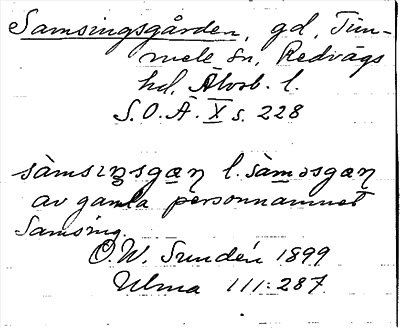 Samsingsgården, gd, Tim-
mele sn, Redvägs
hd, Älvsb. l.
S.O.Ä. X s. 228
sàmsıŋsgæɳ l. sàməsgæɳ
av gamla personnamnet
Samsing.
O.W. Sundén 1899
Ulma 111:287.